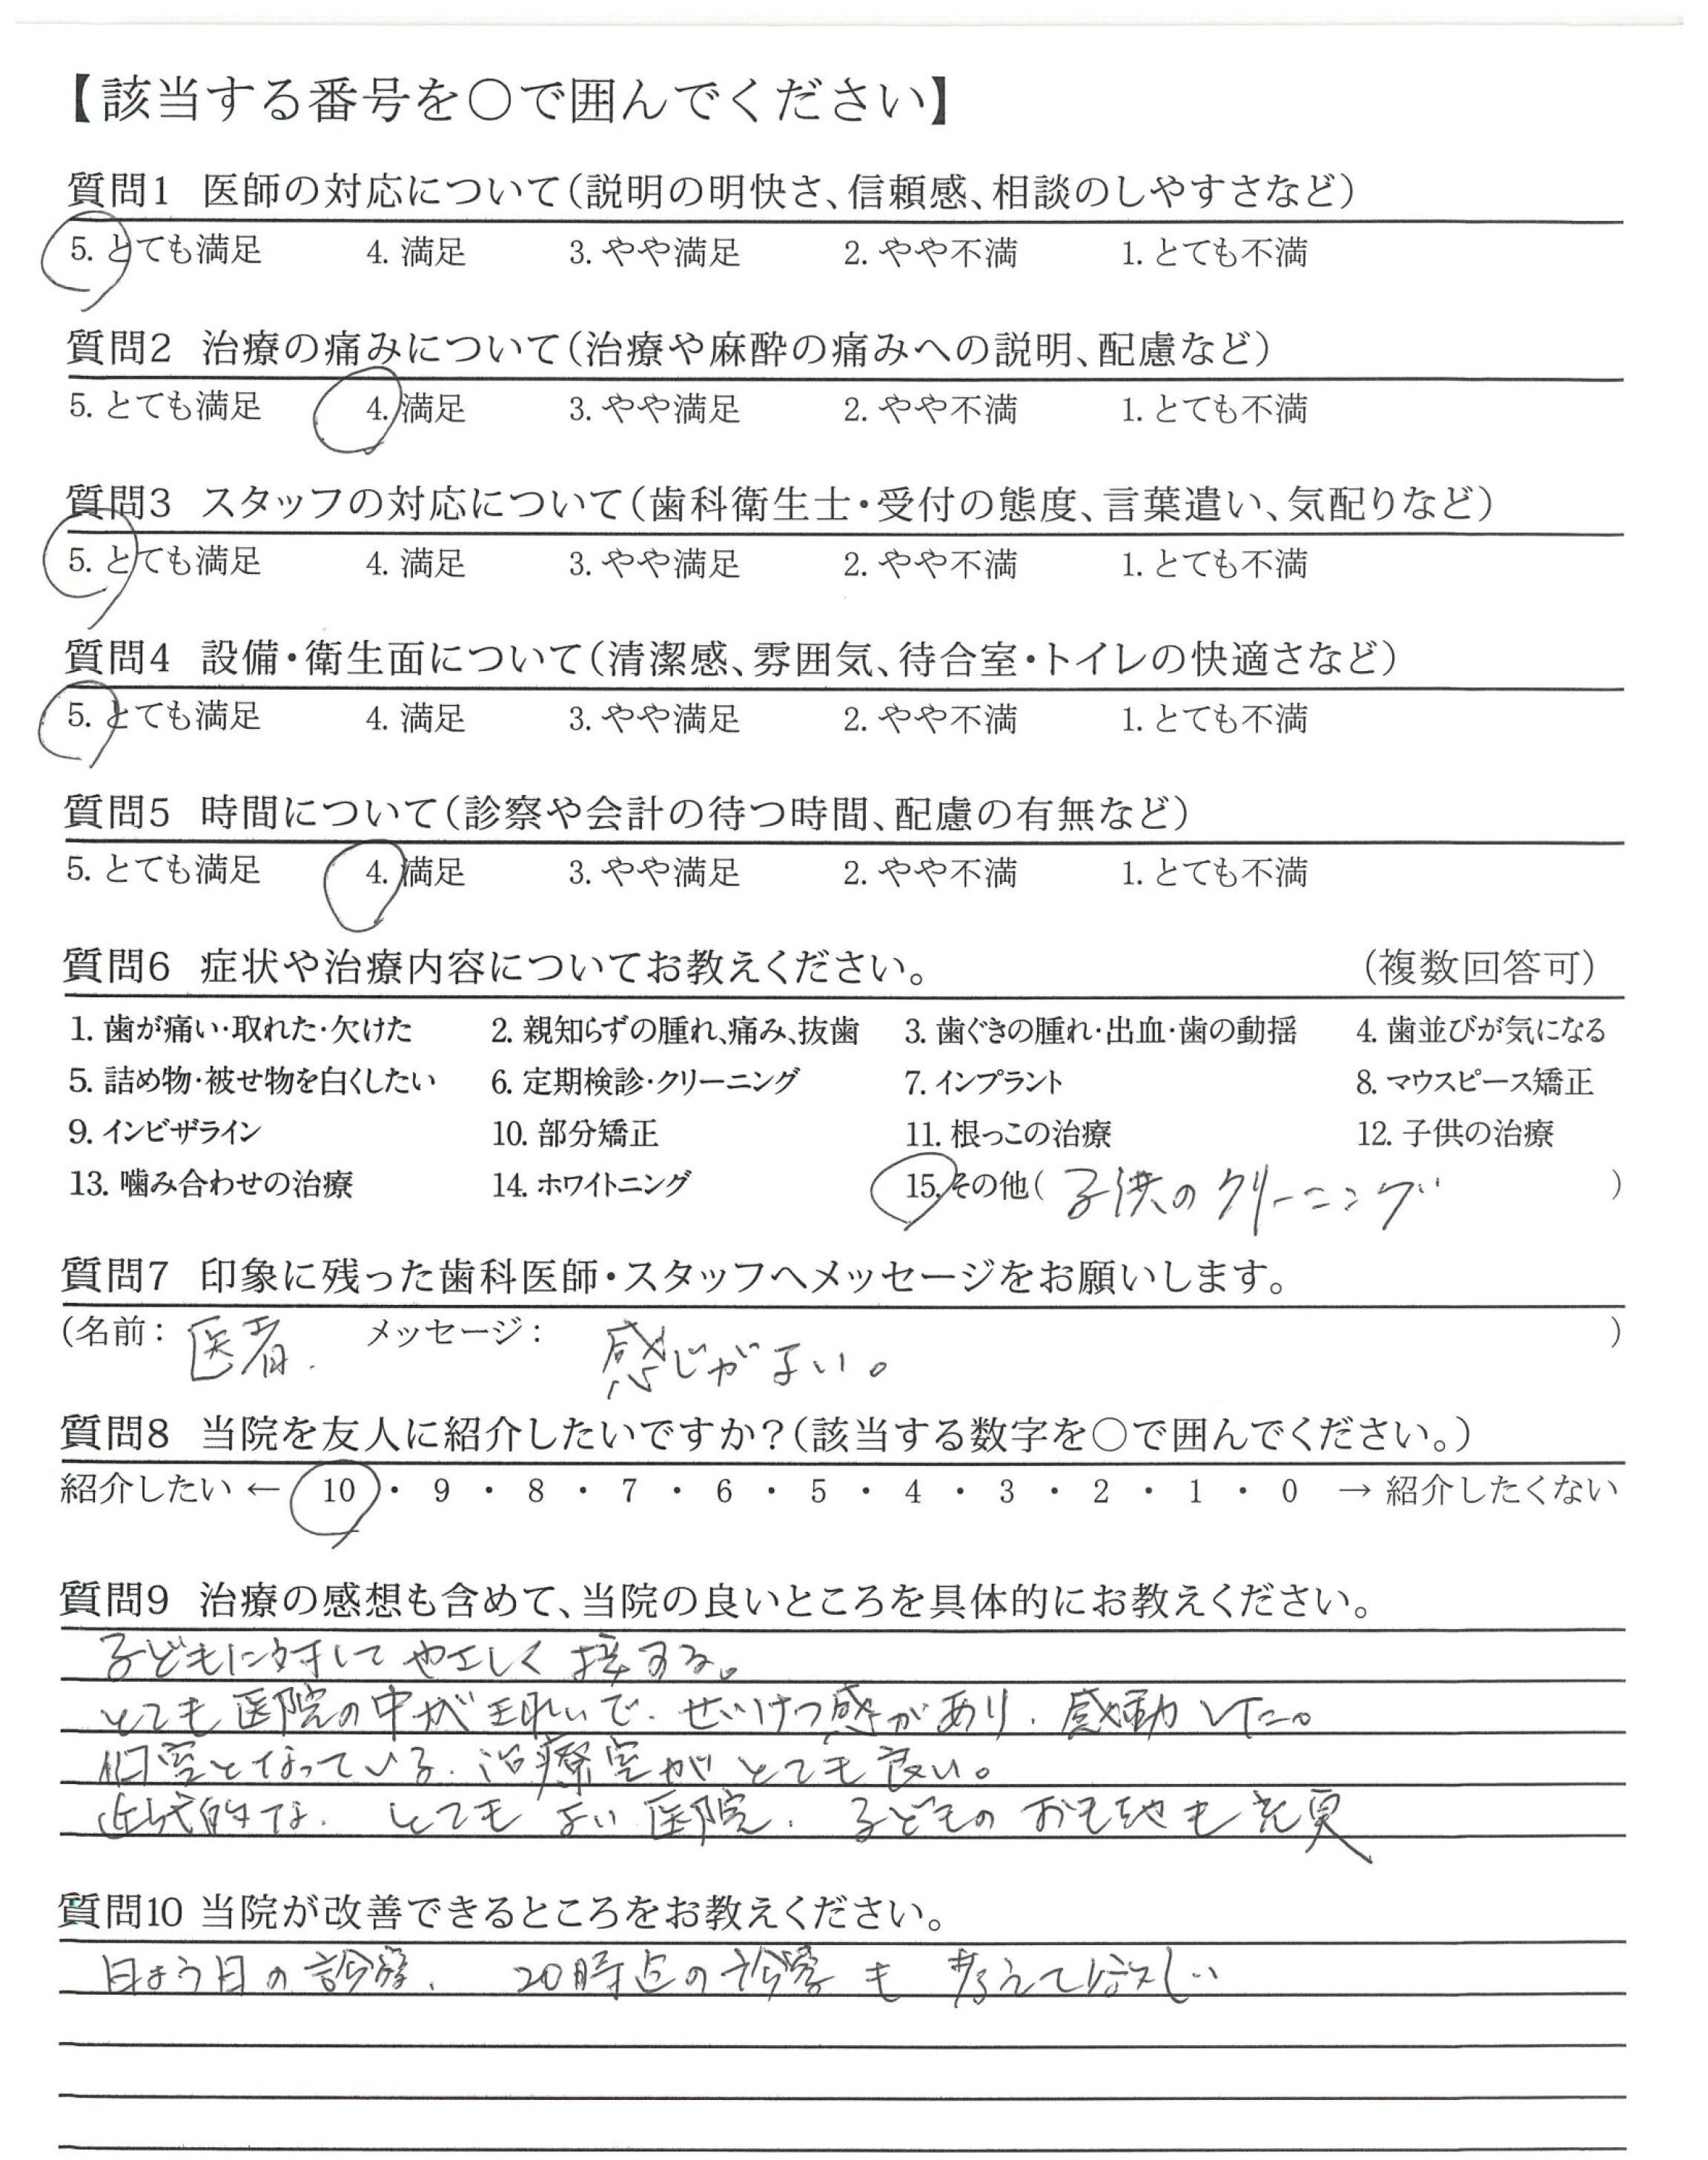 【該当する番号を○で囲んでください】
質問1 医師の対応について(説明の明快さ、信頼感、相談のしやすさなど)
5. とても満足 4. 満足 3. やや満足 2. やや不満 1. とても不満
質問2 治療の痛みについて(治療や麻酔の痛みへの説明、配慮など)
5. とても満足 4. 満足 3. やや満足 2. やや不満 1. とても不満
質問3 スタッフの対応について(歯科衛生士・受付の態度、言葉遣い、気配りなど)
5. とても満足 4. 満足 3. やや満足 2. やや不満 1. とても不満
質問4 設備・衛生面について(清潔感、雰囲気、待合室・トイレの快適さなど)
5. とても満足 4. 満足 3. やや満足 2. やや不満 1. とても不満
質問5 時間について(診察や会計の待つ時間、配慮の有無など)
5. とても満足 4. 満足 3. やや満足 2. やや不満 1. とても不満
質問6 症状や治療内容についてお教えください。 (複数回答可)
1. 歯が痛い・取れた・欠けた 2. 親知らずの腫れ、痛み、抜歯 3. 歯ぐきの腫れ・出血・歯の動揺 4. 歯並びが気になる
5. 詰め物・被せ物を白くしたい 6. 定期検診・クリーニング 7. インプラント 8. マウスピース矯正
9. インビザライン 10. 部分矯正 11. 根っこの治療 12. 子供の治療
13. 噛み合わせの治療 14. ホワイトニング 15. その他( 子供のクリーニング )
質問7 印象に残った歯科医師・スタッフへメッセージをお願いします。
(名前: 医者. メッセージ: 感じがよい。 )
質問8 当院を友人に紹介したいですか?(該当する数字を○で囲んでください。)
紹介したい ← 10 ・ 9 ・ 8 ・ 7 ・ 6 ・ 5 ・ 4 ・ 3 ・ 2 ・ 1 ・ 0 → 紹介したくない
質問9 治療の感想も含めて、当院の良いところを具体的にお教えください。
子どもに対して やさしく 接する。
とても医院の中がきれいで、せいけつ感があり、感動した。
個室となっている、治療室がとても良い。
近代的な、とても よい 医院、子どもの おもちゃも充実
質問10 当院が改善できるところをお教えください。
日よう日の診察、20時迄の診察も 考えて欲しい